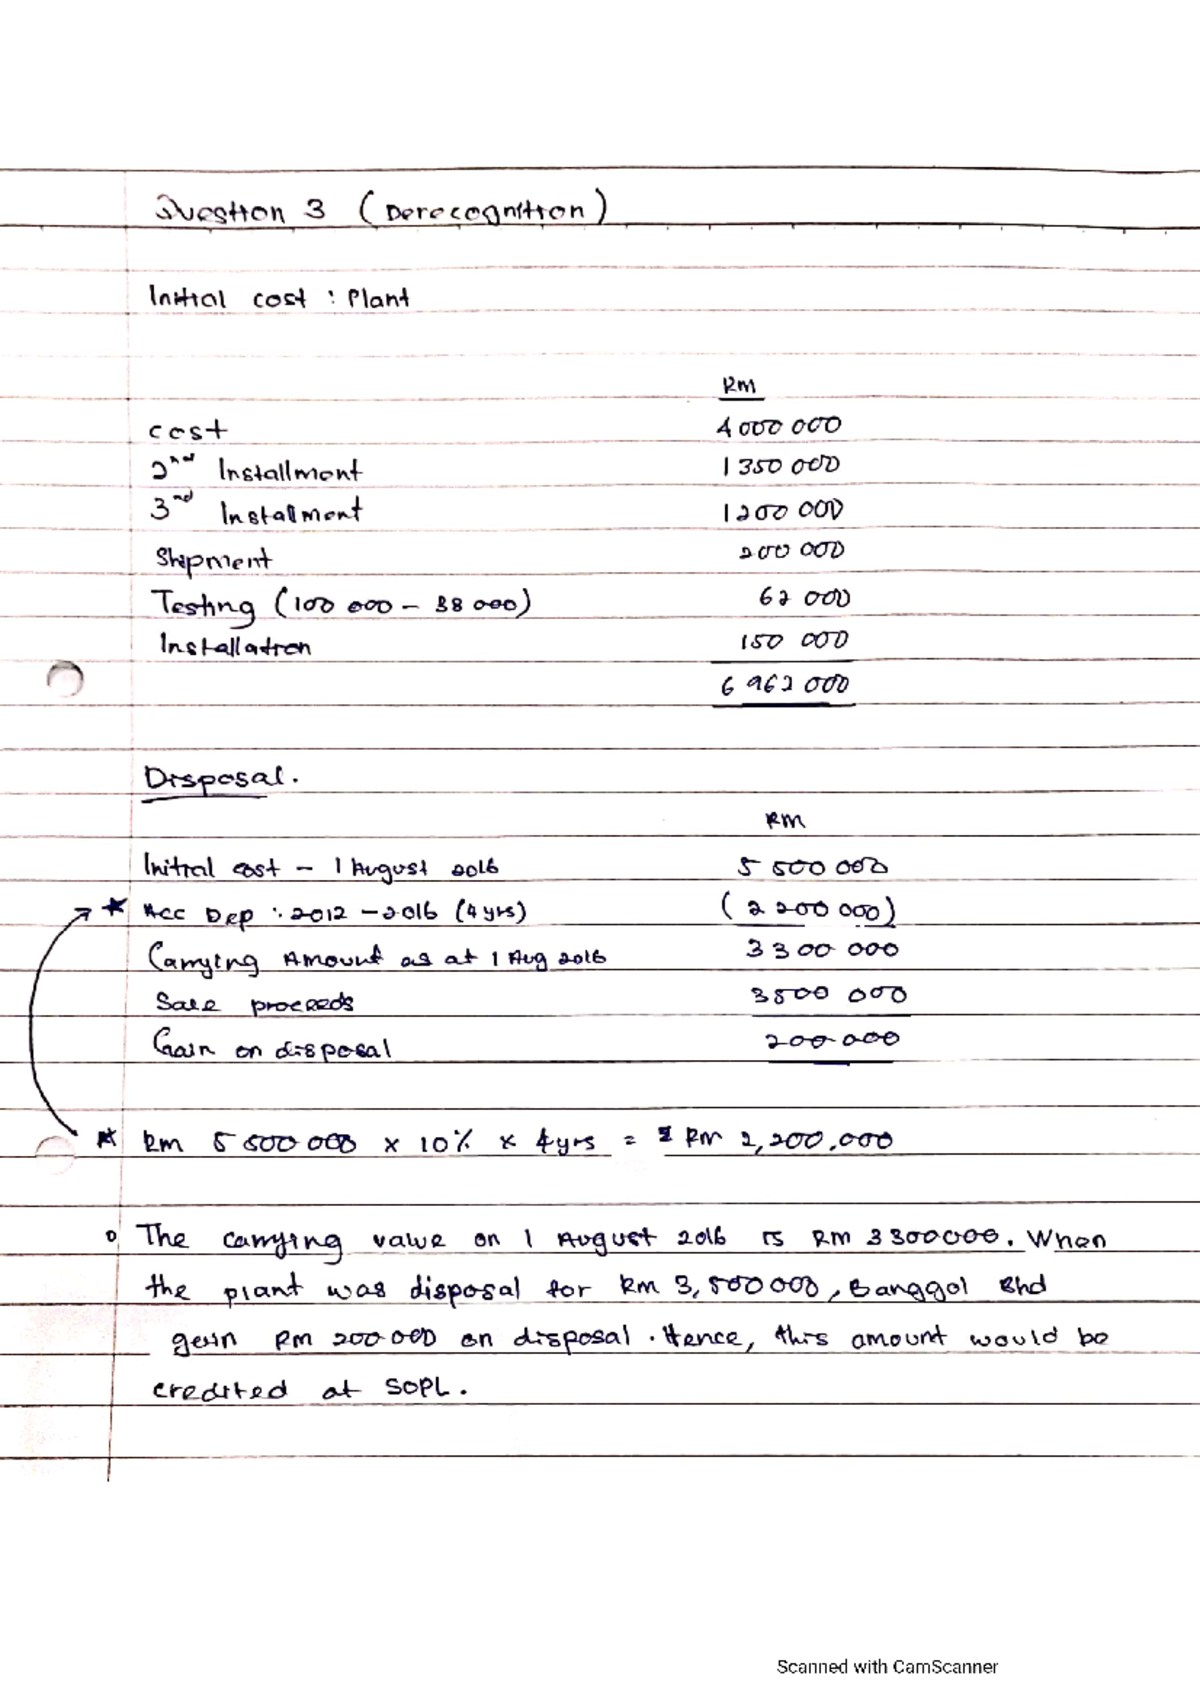 Question 3 (Derecognition)
Initial cost : Plant
RM
cost 4 000 000
2nd Installment 1 350 000
3nd Installment 1 200 000
Shipment 200 000
Testing (100 000 - 38 000) 62 000
Installation 150 000
6 962 000
Disposal.
RM
Initial cost - 1 August 2016 5 500 000
* Acc Dep : 2012 - 2016 (4 yrs) (2 200 000)
Carrying Amount as at 1 Aug 2016 3 300 000
Sale proceeds 3500 000
Gain on disposal 200 000
* RM 5 500 000 x 10% x 4 yrs = RM 2,200,000
The carrying value on 1 August 2016 is RM 3 300 000. When
the plant was disposal for RM 3,500 000, Banggol Bhd
gain RM 200 000 on disposal. Hence, this amount would be
credited at SOPL.
Scanned with CamScanner